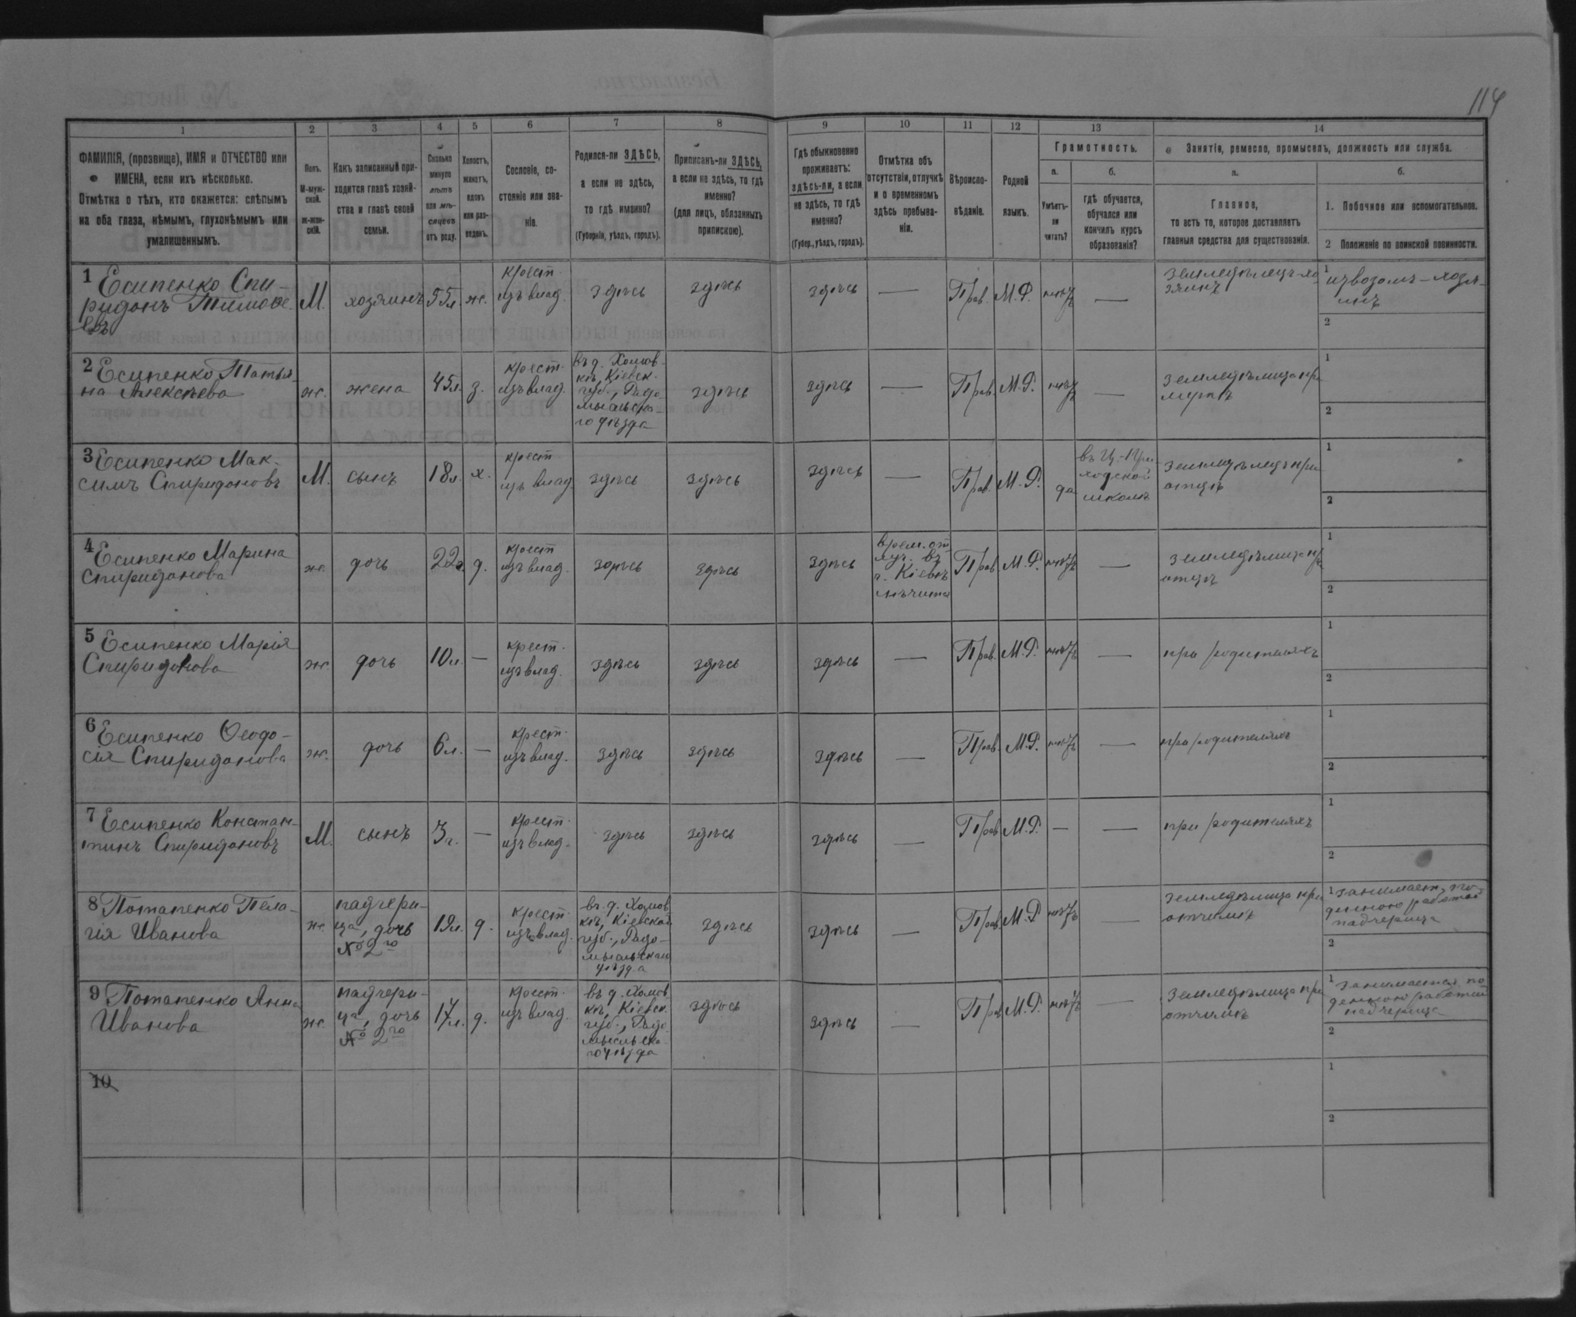 114
1 2 3 4 5 6 7 8 9 10 11 12 13 14
ФАМИЛІЯ, (прозвище), ИМЯ и ОТЧЕСТВО или
ИМЕНА, если ихъ нѣсколько.
Отмѣтка о тѣхъ, кто окажется: слѣпымъ
на оба глаза, нѣмымъ, глухонѣмымъ или
умалишеннымъ.
Полъ.
М-муж-
ской.
ж-жен-
скій.
Какъ записанный при-
ходится главѣ хозяй-
ства и главѣ своей
семьи.
Сколько
минуло
лѣтъ
или мѣ-
сяцевъ
отъ роду.
Холостъ,
женатъ,
вдовъ
или раз-
веденъ.
Сословіе, со-
стояніе или зва-
ніе.
Родился-ли ЗДѢСЬ,
а если не здѣсь,
то гдѣ именно?
(Губернія, уѣздъ, городъ).
Приписанъ-ли ЗДѢСЬ,
а если не здѣсь, то гдѣ
именно?
(для лицъ, обязанныхъ
припискою).
Гдѣ обыкновенно
проживаетъ:
здѣсь-ли, а если
не здѣсь, то гдѣ
именно?
(Губер., уѣздъ, городъ).
Отмѣтка объ
отсутствіи, отлучкѣ
и о временномъ
здѣсь пребыва-
ніи.
Вѣроиспо-
вѣданіе.
Родной
языкъ.
Грамотность.
а.
Умѣетъ-
ли
читать?
б.
гдѣ обучается,
обучался или
кончилъ курсъ
образованія?
Занятіе, ремесло, промыселъ, должность или служба.
а.
Главное,
то есть то, которое доставляетъ
главныя средства для существованія.
б.
1. Побочное или вспомогательное.
2 Положеніе по воинской повинности.
1 Есипенко Спи-
ридонъ Тимофе-
евъ
М.
хозяинъ
55л.
ж.
крест.
изъ влад.
здѣсь
здѣсь
здѣсь
—
Прав.
М.Р.
нѣтъ
—
земледѣлецъ-хо-
зяинъ
1 извозомъ-хозя-
инъ
2
2 Есипенко Татья
на Алексѣева
ж.
жена
45л.
з.
крест.
изъ влад.
въ д. Хомов-
кѣ, Кіевск.
губ., Радо
мысльска-
го уѣзда
здѣсь
здѣсь
—
Прав.
М.Р.
нѣтъ
—
земледѣлица при
мужѣ
1
2
3 Есипенко Мак-
симъ Спиридоновъ
М.
сынъ
18л.
х.
крест
изъ влад
здѣсь
здѣсь
здѣсь
—
Прав.
М.Р.
да
въ Ц.-При
ходской
школѣ
земледѣлецъ при
отцѣ
1
2
4 Есипенко Марина
Спиридонова
ж.
дочь
22г.
д.
крест
изъ влад.
здѣсь
здѣсь
здѣсь
врем. от
луч. въ
г. Кіевъ
Прав
М.Р.
нѣтъ
—
земледѣлица при
отцѣ
1
2
5 Есипенко Марія
Спиридонова
ж.
дочь
10л.
—
крест.
изъ влад.
здѣсь
здѣсь
здѣсь
—
Прав.
М.Р.
нѣтъ
—
при родителяхъ
1
2
6 Есипенко Ѳеодо-
сія Спиридонова
ж.
дочь
6л.
—
крест.
изъ влад.
здѣсь
здѣсь
здѣсь
—
Прав.
М.Р.
нѣтъ
—
при родителяхъ
1
2
7 Есипенко Констан-
тинъ Спиридоновъ
М.
сынъ
3г.
—
крест.
изъ влад.
здѣсь
здѣсь
здѣсь
—
Прав
М.Р.
—
—
при родителяхъ
1
2
8 Потапенко Пела-
гія Иванова
ж.
падчери-
ца, дочь
№ 2го
19л.
д.
крест
изъ влад.
въ д. Хомов
кѣ, Кіевской
губ., Радо-
мысльскаго
уѣзда
здѣсь
здѣсь
—
Прав.
М.Р
нѣтъ
—
земледѣлица при
отчимѣ
1 занимает. по-
денною работой
падчерица
2
9 Потапенко Анна
Иванова
ж.
падчери-
ца, дочь
№ 2го
17л.
д.
крест.
изъ влад.
въ д. Хомов
кѣ, Кіевск.
губ., Радо
мысльска-
го уѣзда
здѣсь
здѣсь
—
Прав
М.Р.
нѣтъ
—
земледѣлица при
отчимѣ
1 занимается по
денною работой
падчерица
2
10
1
2